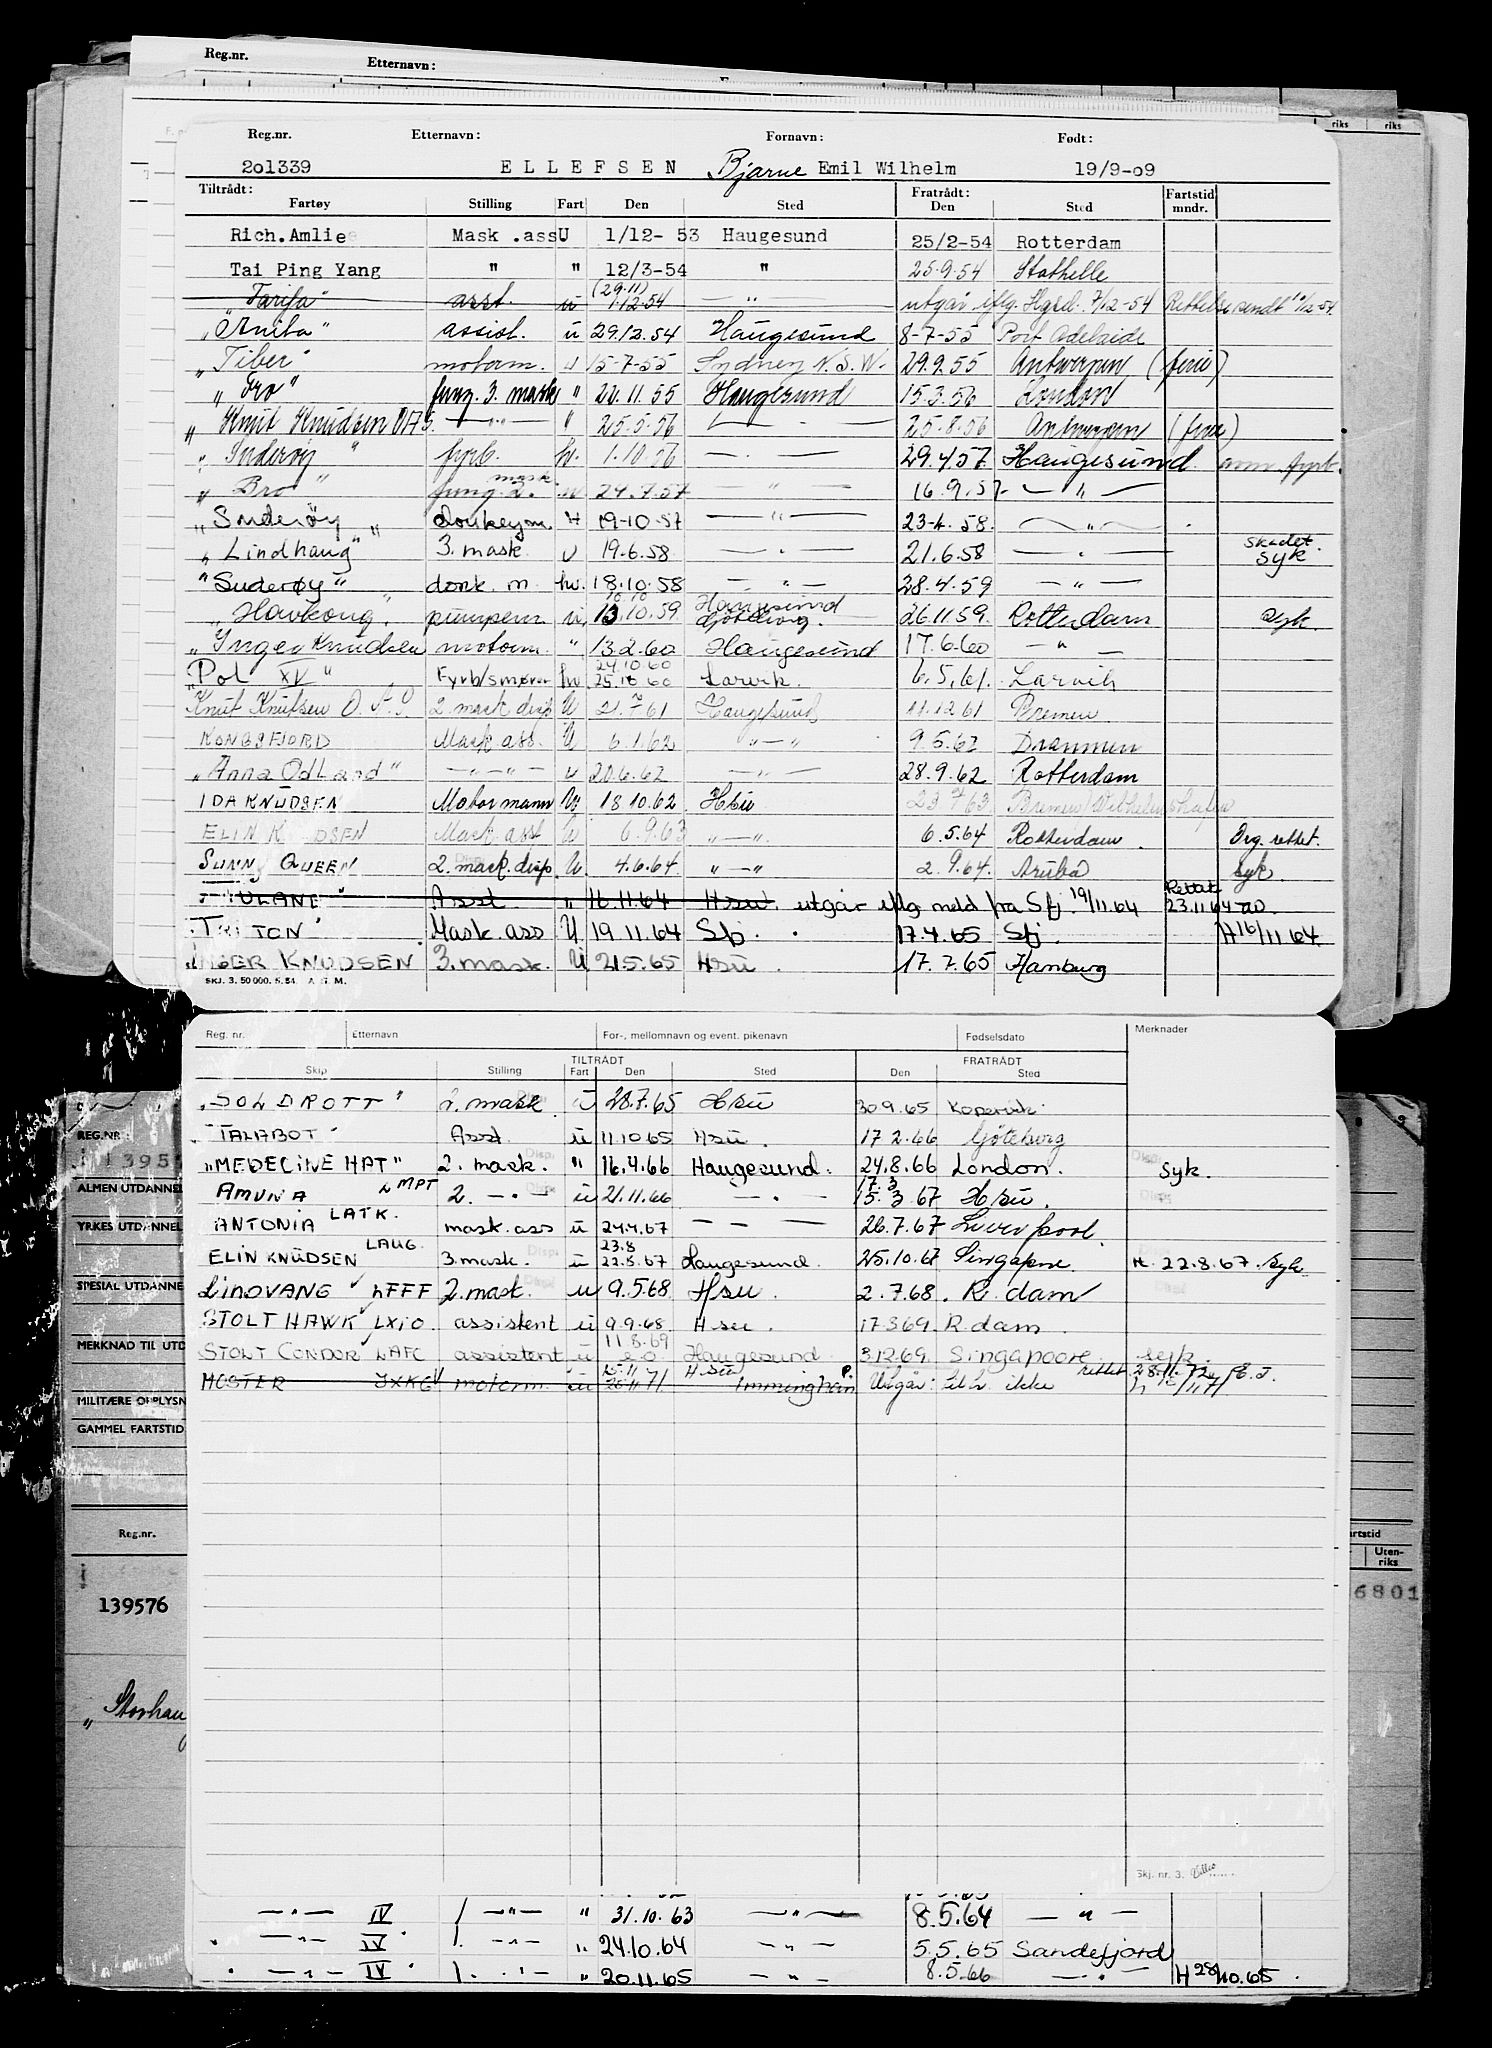 Reg.nr. Etternavn:
riks riks
Reg.nr. Etternavn: Fornavn: Født:
2o1339 ELLEFSEN Bjarne Emil Wilhelm 19/9-o9
Tiltrådt: Fratrådt: Fartstid
Fartøy Stilling Fart Den Sted Den Sted mndr.
Rich.Amlie Mask.ass U 1/12- 53 Haugesund 25/2-54 Rotterdam
Tai Ping Yang " " 12/3-54 " 25.9.54 Stathelle
(29.11)
Tarifa" asst. u 1.12.54 — " — utgår iflg. Hgsd. 7/12-54 Rettelse sendt 10/12-54
"Anita" assist. u 29.12.54 Haugesund 8-7-55 Port Adelaide
"Tiber" motorm. u 15-7-55 Sydney N.S.W. 29.9.55 Antwerpen (ferie)
"Bro" fung. 3. mask " 22.11.55 Haugesund 15.3.56 London
"Knut Knudsen OAS. — " — " 25.5.56 — " — 25.8.56 Antwerpen (ferie)
"Suderøy" fyrb. hv. 1.10.56 — " — 29.4.57 Haugesund
mask
"Bro" fung. 2. u 24.7.57 — " — 16.9.57 — " —
"Suderøy" donkeym. H 19-10-57 — " — 23-4.58. — " —
skadet.
"Lindhaug" 3. mask. u 19.6.58 — " — 21.6.58 — " — syk
"Suderøy" donk. m. hv. 18.10.58 — " — 28.4.59 — " —
10.10 Haugesund
"Havkong" pumpem u 13.10.59 Göteborg. 26.11.59. Rotterdam syk.
"Inger Knudsen motorm. " 13.2.60 Haugesund 17.6.60 — " —
24.10.60
"Pol XV" Fyrb/smører hv 25.10.60 Larvik. 6.5.61. Larvik
Knut Knutsen O.A.S. 2. mask disp U 21.7.61 Haugesund 11.12.61 Bremen
KONGSFJORD Mask.ass. U 6.1.62 — " — 9.5.62 Drammen
"Anna Odland" — " — " — u 20.6.62 — " — 28.9.62 Rotterdam
IDA KNUDSEN Motormann U. 18.10.62. Hsu 23.7.63 Bremen/Wilhelmshafen
ELIN KNUDSEN Mask.asst U 6.9.63 " — ". 6.5.64 Rotterdam. Org. rettet.
SUNNY QUEEN 2. mask.disp. U. 4.6.64. " — " 2.9.64. Aruba syk.
Rettet
TULANE" Asst " 16.11.64 Hsu. utgår iflg. meld fra Sfj. 19/11.64 23.11.64
"TRITON" Mask.ass U. 19.11.64 Sfj. 17.4.65 Sfj. H 16/11 64.
INGER KNUDSEN 3. mask. U 21.5.65 Hsu. 17.7.65 Hamburg
SKJ. 3. 50 000. 5.54. A. S. M.
Reg. nr. Etternavn For-, mellomnavn og event. pikenavn Fødselsdato Merknader
TILTRÅDT FRATRÅDT
Skip Stilling Fart Den Sted Den Sted
"SOLDROTT" 2. mask u 28.7.65 Hsu 30.9.65 Kopervik.
"TALABOT" Asst. u 11.10.65 Hsu. 17.2.66 Göteborg
"MEDECINE HAT" 2. mask. " 16.4.66 Haugesund. 24.8.66 London. Syk.
17.3
AMUNA LMPT 2. — " — u 21.11.66 — " — 15.3.67 Hsu.
ANTONIA LATK. mask.ass u 24.4.67 — — — 26.7.67 Liverpool.
23.8
ELIN KNUDSEN LAUG. 3. mask. u 22.8.67 Haugesund. 25.10.67 Singapore H. 22.8.67. Syk
LINDVANG LFFF 2. mask. u 9.5.68 Hsu. 2.7.68. R.dam
STOLT HAWK LXIO. assistent u 9.9.68 Hsu. 17.3.69. R.dam.
11.8.69
STOLT CONDOR LAFC assistent u Haugesund. 3.12.69. Singapoore syk.
15.11 Hsu rettet 28.11.72
MOSTER motorm. u 26.11.71 Immingham Utgår: tiltr. ikke
REG.NR.
ALMEN UTDANNEL
YRKES UTDANNEL
SPESIAL UTDANNE
MERKNAD TIL UTD
MILITÆRE OPPLYSN
GAMMEL FARTSTID
Reg.nr. artstid
Uten-
riks
139576 6801
"Storhau
Skj. nr. 3.
— " — IV 1 — " — " 31.10.63 — " — 8.5.64 — " —
" — " — IV" 1. — " — " 24.10.64 — " — 5.5.65 Sandefjord
" — " — IV" 1. — " — " 20.11.65 — " — 8.5.66 — " — H 28/10.65.